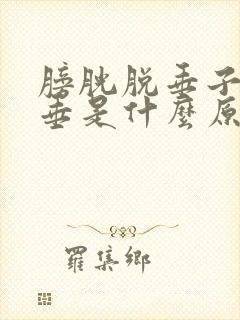 膀胱脱垂子
垂是什麼原
羅集鄉